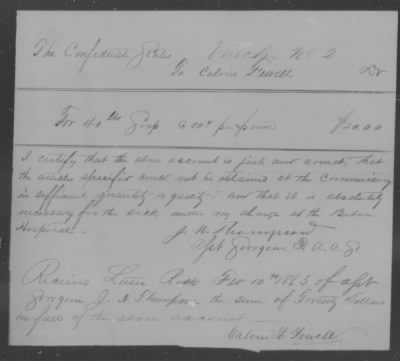 The Confederate States Vouch No 2
To Calvin Fewell Dr
For 40 lbs Soap @ 50c per pound $20.00
I certify that the above account is just and correct that
the articles specified could not be obtained at the Commissary
in sufficient quantity or quality; and that it is absolutely
necessary for the sick under my charge at the
Hospital.
J. N. Thompson
Asst Surgeon P. A. C. S.
Received Little Rock Feb 10th 1863 of asst
Surgeon J. N. Thompson the sum of Twenty Dollars
in full of the above account
Calvin Fewell